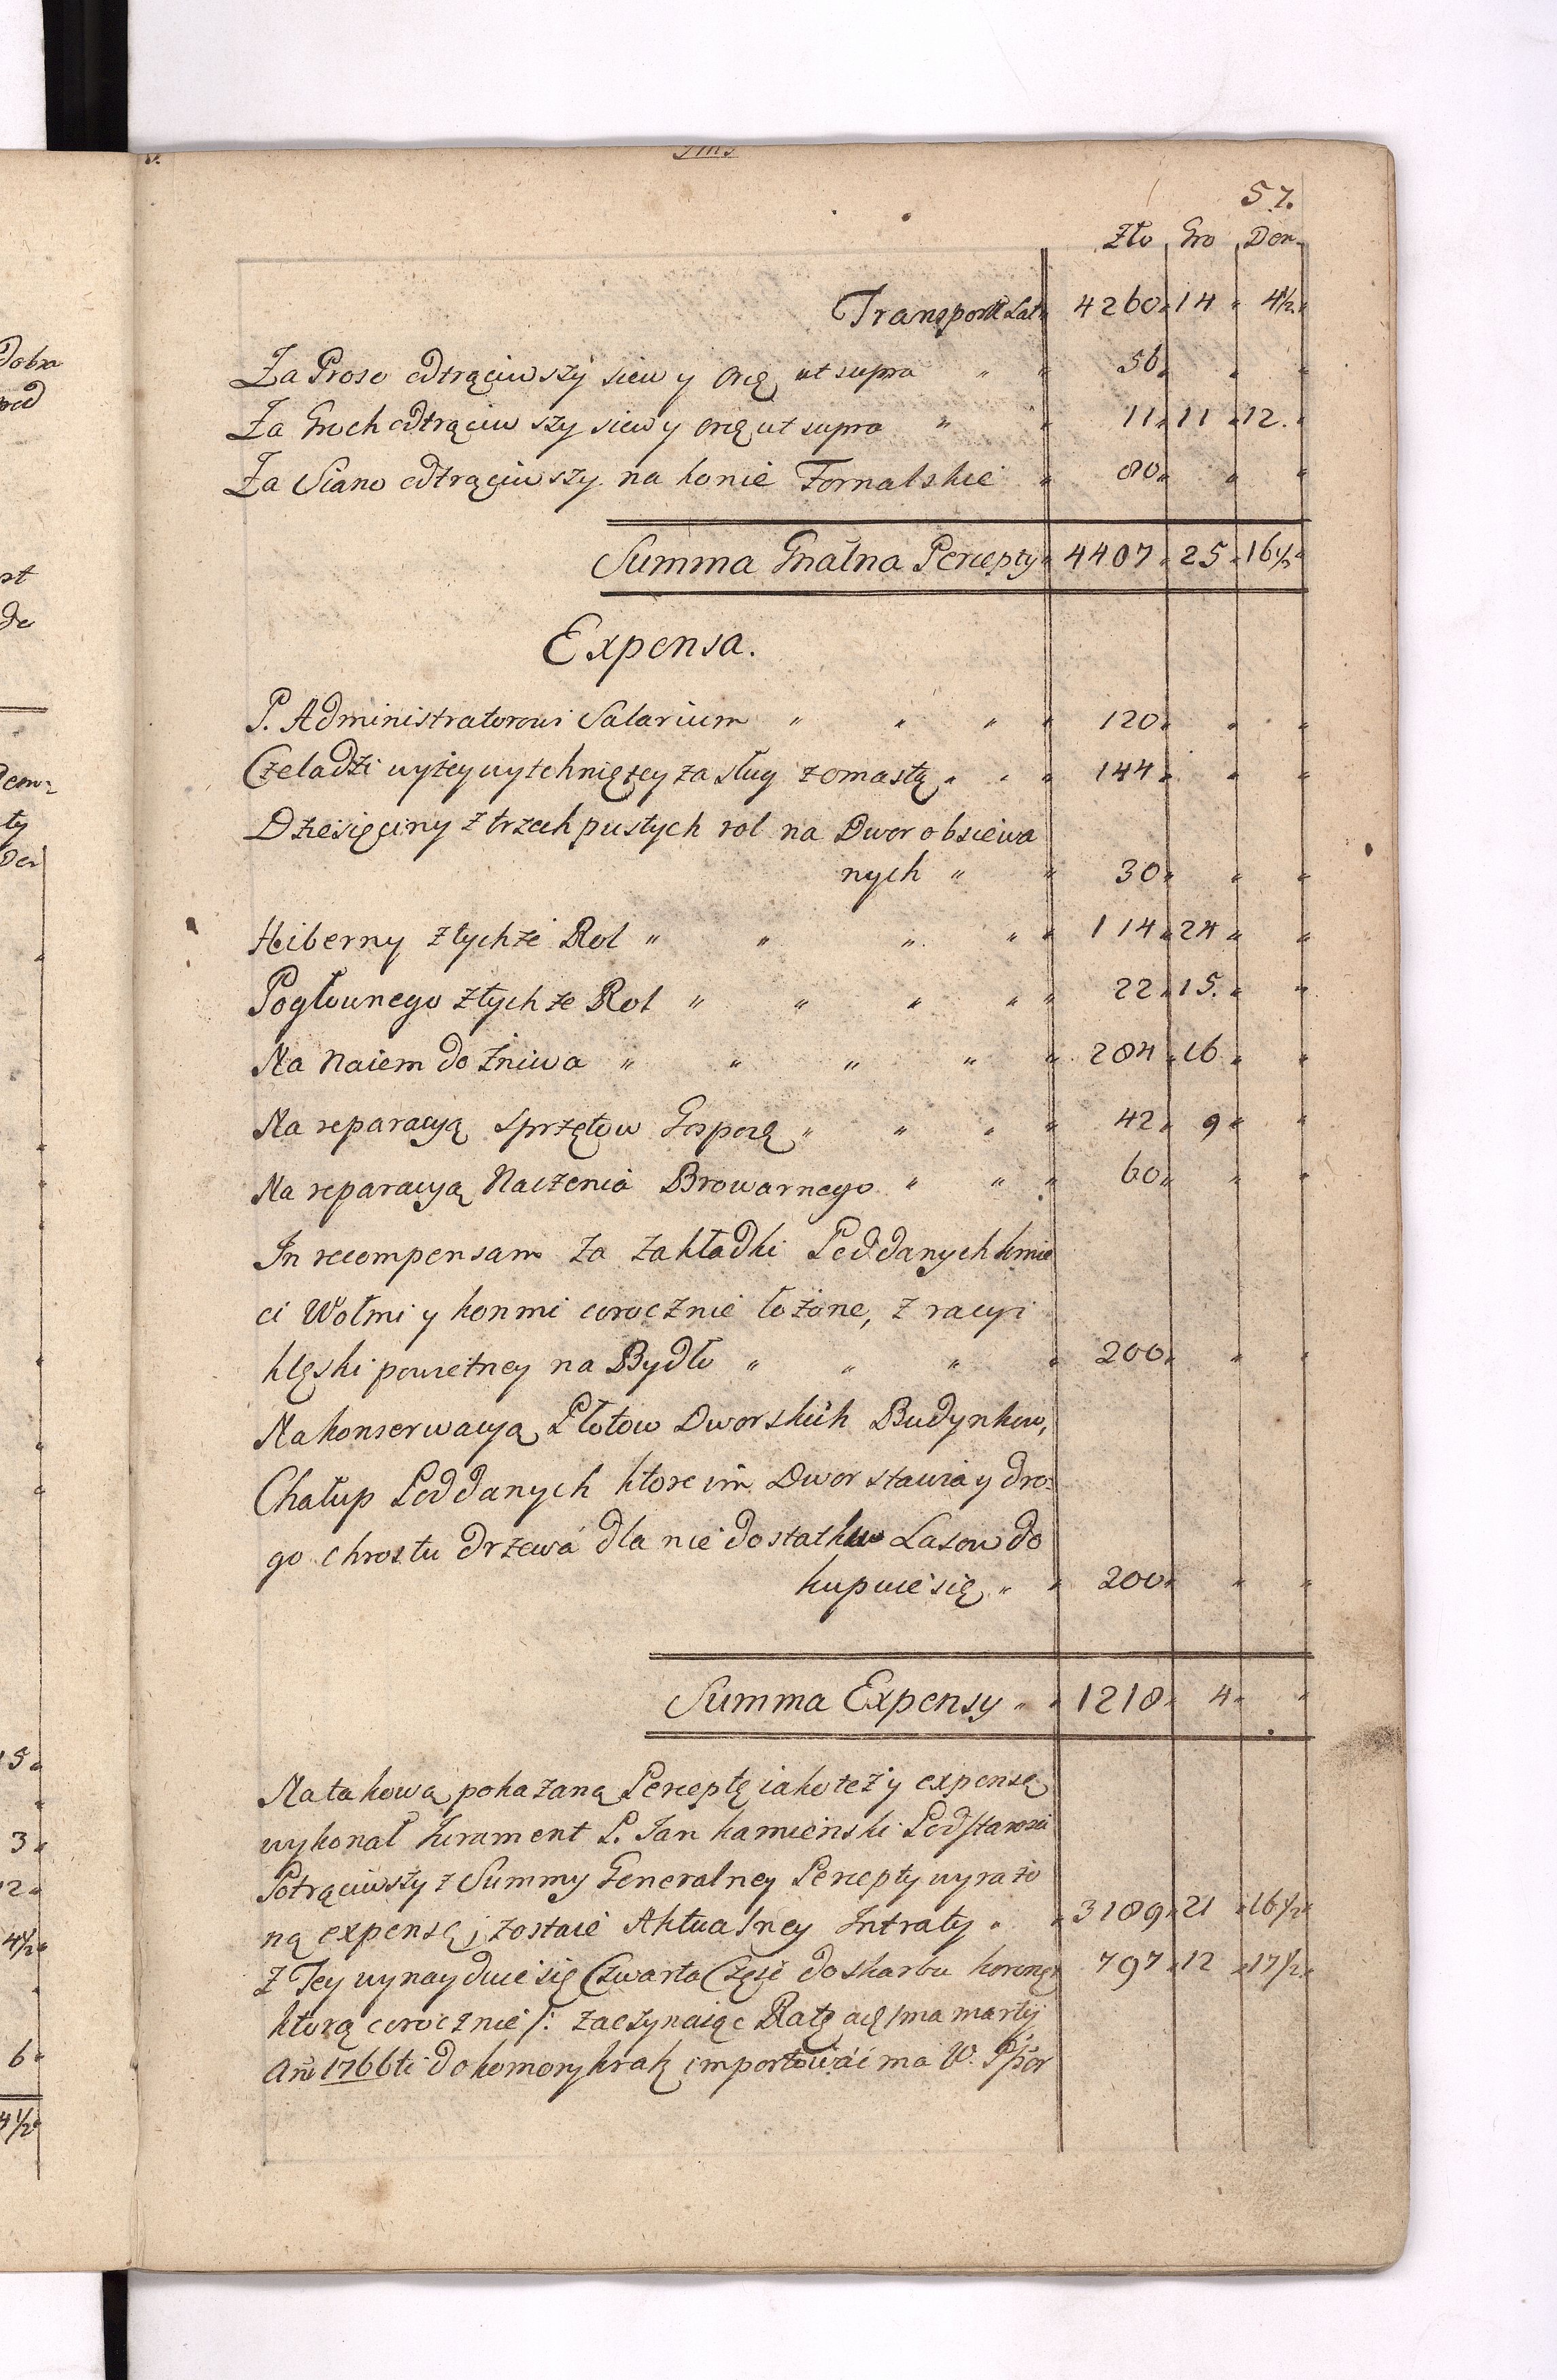 57.
Zło Gro Den
Transport Lat. 4260 14 4½
Za Proso odtrąciwszy siew y Ord. ut supra " " 56 " "
Za Groch odtrąciwszy siew y ord. ut supra " " 11 11 12.
Za Siano odtrąciwszy na konie Fornalskie " 80 " "
Summa Gnalna Percepty 4407 25 16½
Expensa.
P. Administratorowi Salarium " " " " 120 " "
Czeladzi wyżey wytchnięzey zasług z omastą " " " 144 " "
Dziesięciny z trzech pustych rol na Dwor obsiewa
nych " " 30 " "
Hiberny z tychże Rol " " " " " 114 24 "
Pogłownego z tychże Rol " " " " " 22 15. "
Na Naiem do żniwa " " " " " 284 16 "
Na reparacyą Sprzętow Gospod. " " " " 42 9 "
Na reparacyą Naczenia Browarnego " " " 60 " "
In recompensam za zakładki Poddanych kmie
ci Wołmi y konmi corocznie łożone, z racyi
klęski powietney na Bydło " " " " 200 " "
Na konserwacyą Płotow Dworskich Budynkow,
Chałup Poddanych ktore im Dwor stawia y dro=
go chrostu drzewa dla niedostatku Lasow do
kupuie się " " 200 " "
Summa Expensy " " 1218 4 "
Na takową pokazaną Perceptę iako też y expensę
wykonał Jurament P. Jan Kamieński Podstarosci
Potrąciwszy z Summy Generalney Percepty wyrażo
ną expensę, zostaie Aktualney Intraty " " 3189 21 16½
Z Tey wynayduie się Czwarta Część do skarbu koronne 797 12 17½
ktorą corocznie /: zaczynaiąc Ratę a 1ma martij
Ano 1766ti do komory krak importować ma W. Pssor